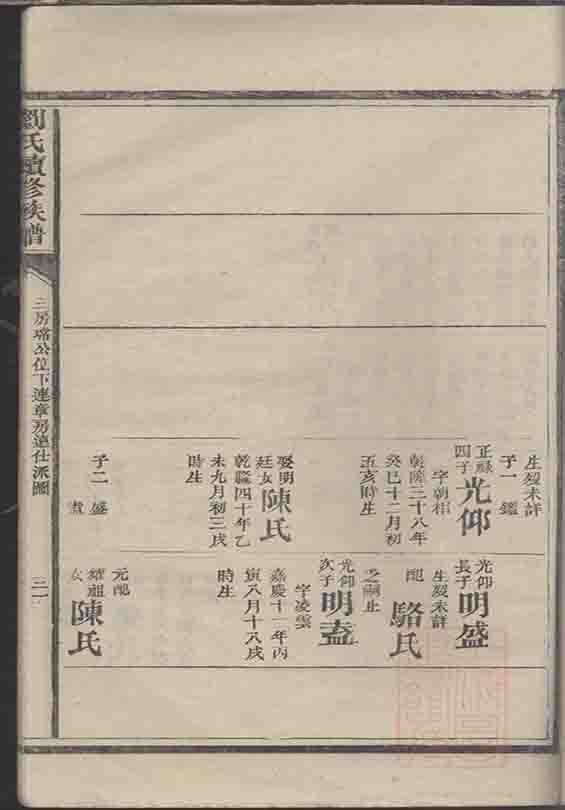 劉氏續修族譜
三房瑺公位下連章房連仕派圖
生歿未詳
子一 鑑
正祿四子
光仰
字朝相
乾隆三十八年
癸巳十二月初
五亥時生
娶明廷女
陳氏
乾隆四十年乙
未九月初三戌
時生
子二 盛
光仰長子
明盛
生歿未詳
配
駱氏
之嗣止
光仰次子
字凌雲
嘉慶十一年丙
寅八月十八戌
時生
元配
耀祖女
陳氏